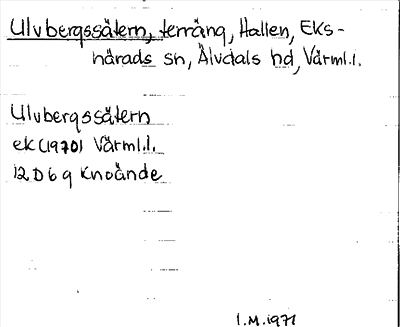 Ulvbergssätern, terräng, Hallen, Eks-
härads sn, Älvdals hd, Värml.l.
Ulvbergssätern
ek (1970) Värml.l.
12 D 6 g Knoände
I.M. 1971